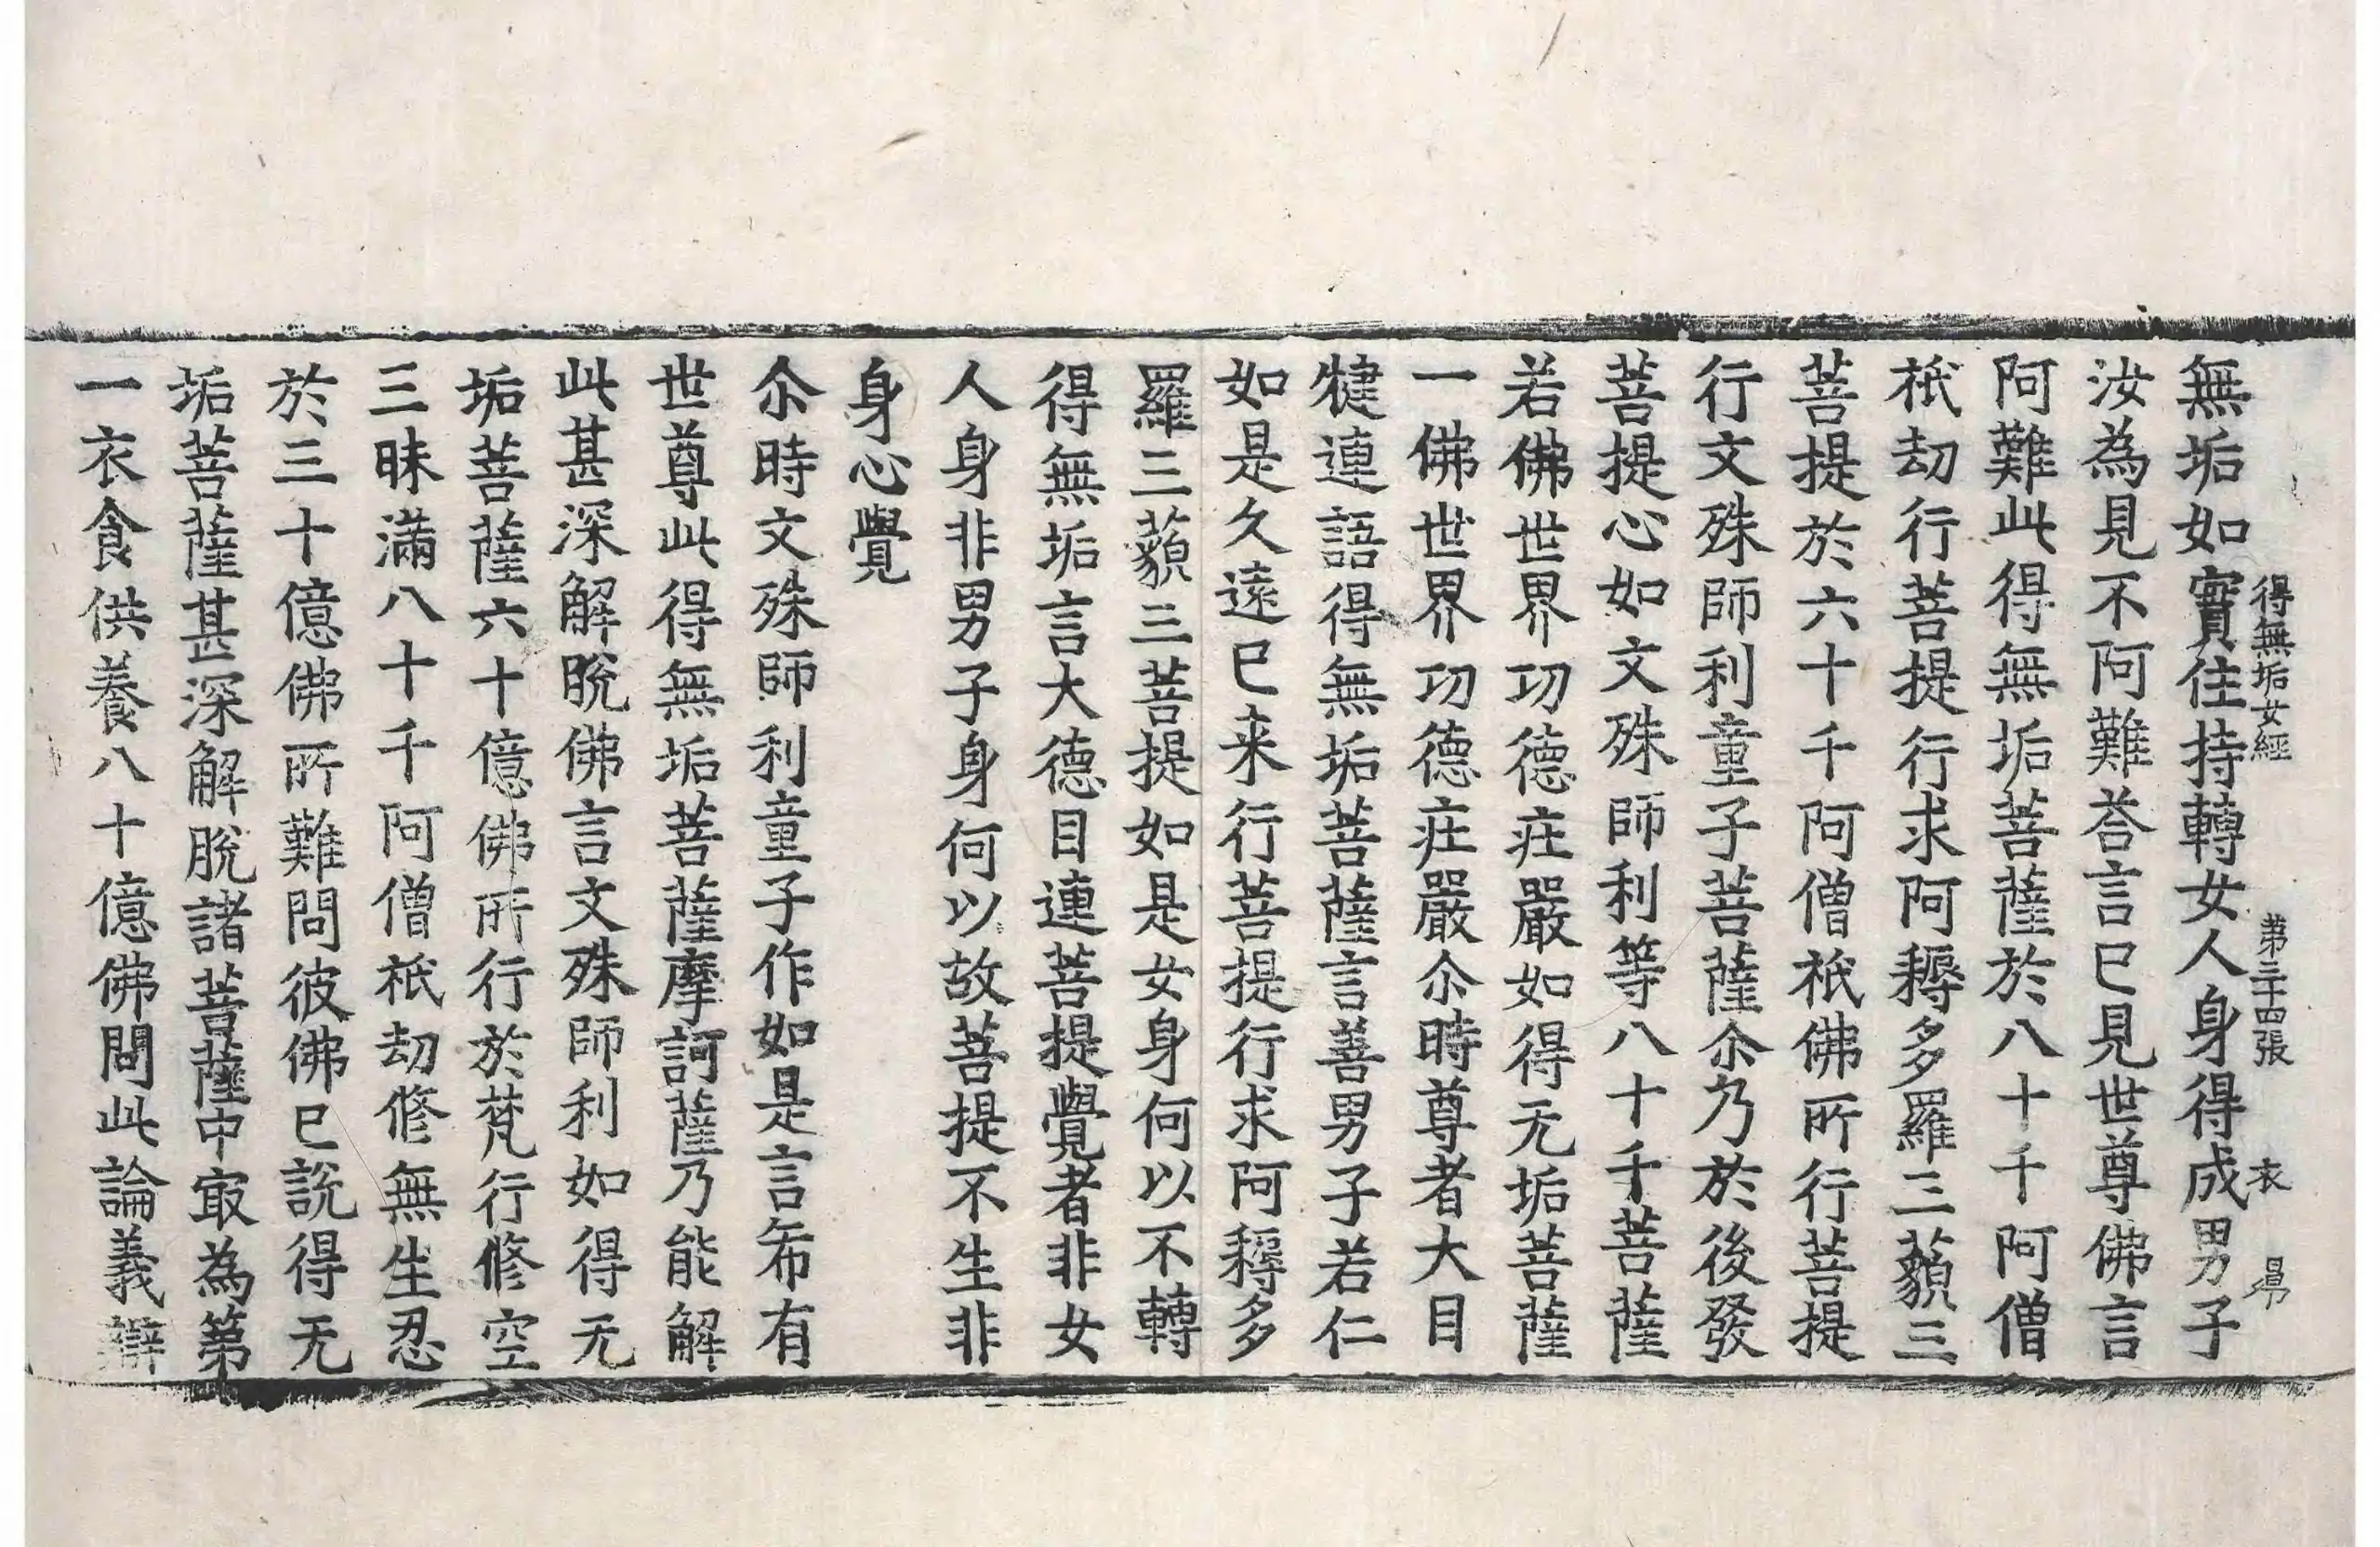 得無垢女經 第三十四張 衣 昻
無垢如實住持轉女人身得成男子
汝為見不阿難荅言已見世尊佛言
阿難此得無垢菩薩於八十千阿僧
祇劫行菩提行求阿耨多羅三藐三
菩提於六十千阿僧祇佛所行菩提
行文殊師利童子菩薩尒乃於後發
菩提心如文殊師利等八十千菩薩
若佛世界功德庄嚴如得无垢菩薩
一佛世界功德庄嚴尒時尊者大目
犍連語得無垢菩薩言善男子若仁
如是久遠已来行菩提行求阿耨多
羅三藐三菩提如是女身何以不轉
得無垢言大德目連菩提覺者非女
人身非男子身何以故菩提不生非
身心覺
尒時文殊師利童子作如是言希有
世尊此得無垢菩薩摩訶薩乃能解
此甚深解脫佛言文殊師利如得无
垢菩薩六十億佛所行於梵行修空
三昧滿八十千阿僧祇劫修無生忍
於三十億佛所難問彼佛已說得无
垢菩薩甚深解脫諸菩薩中㝡為第
一衣食供養八十億佛問此論義辯